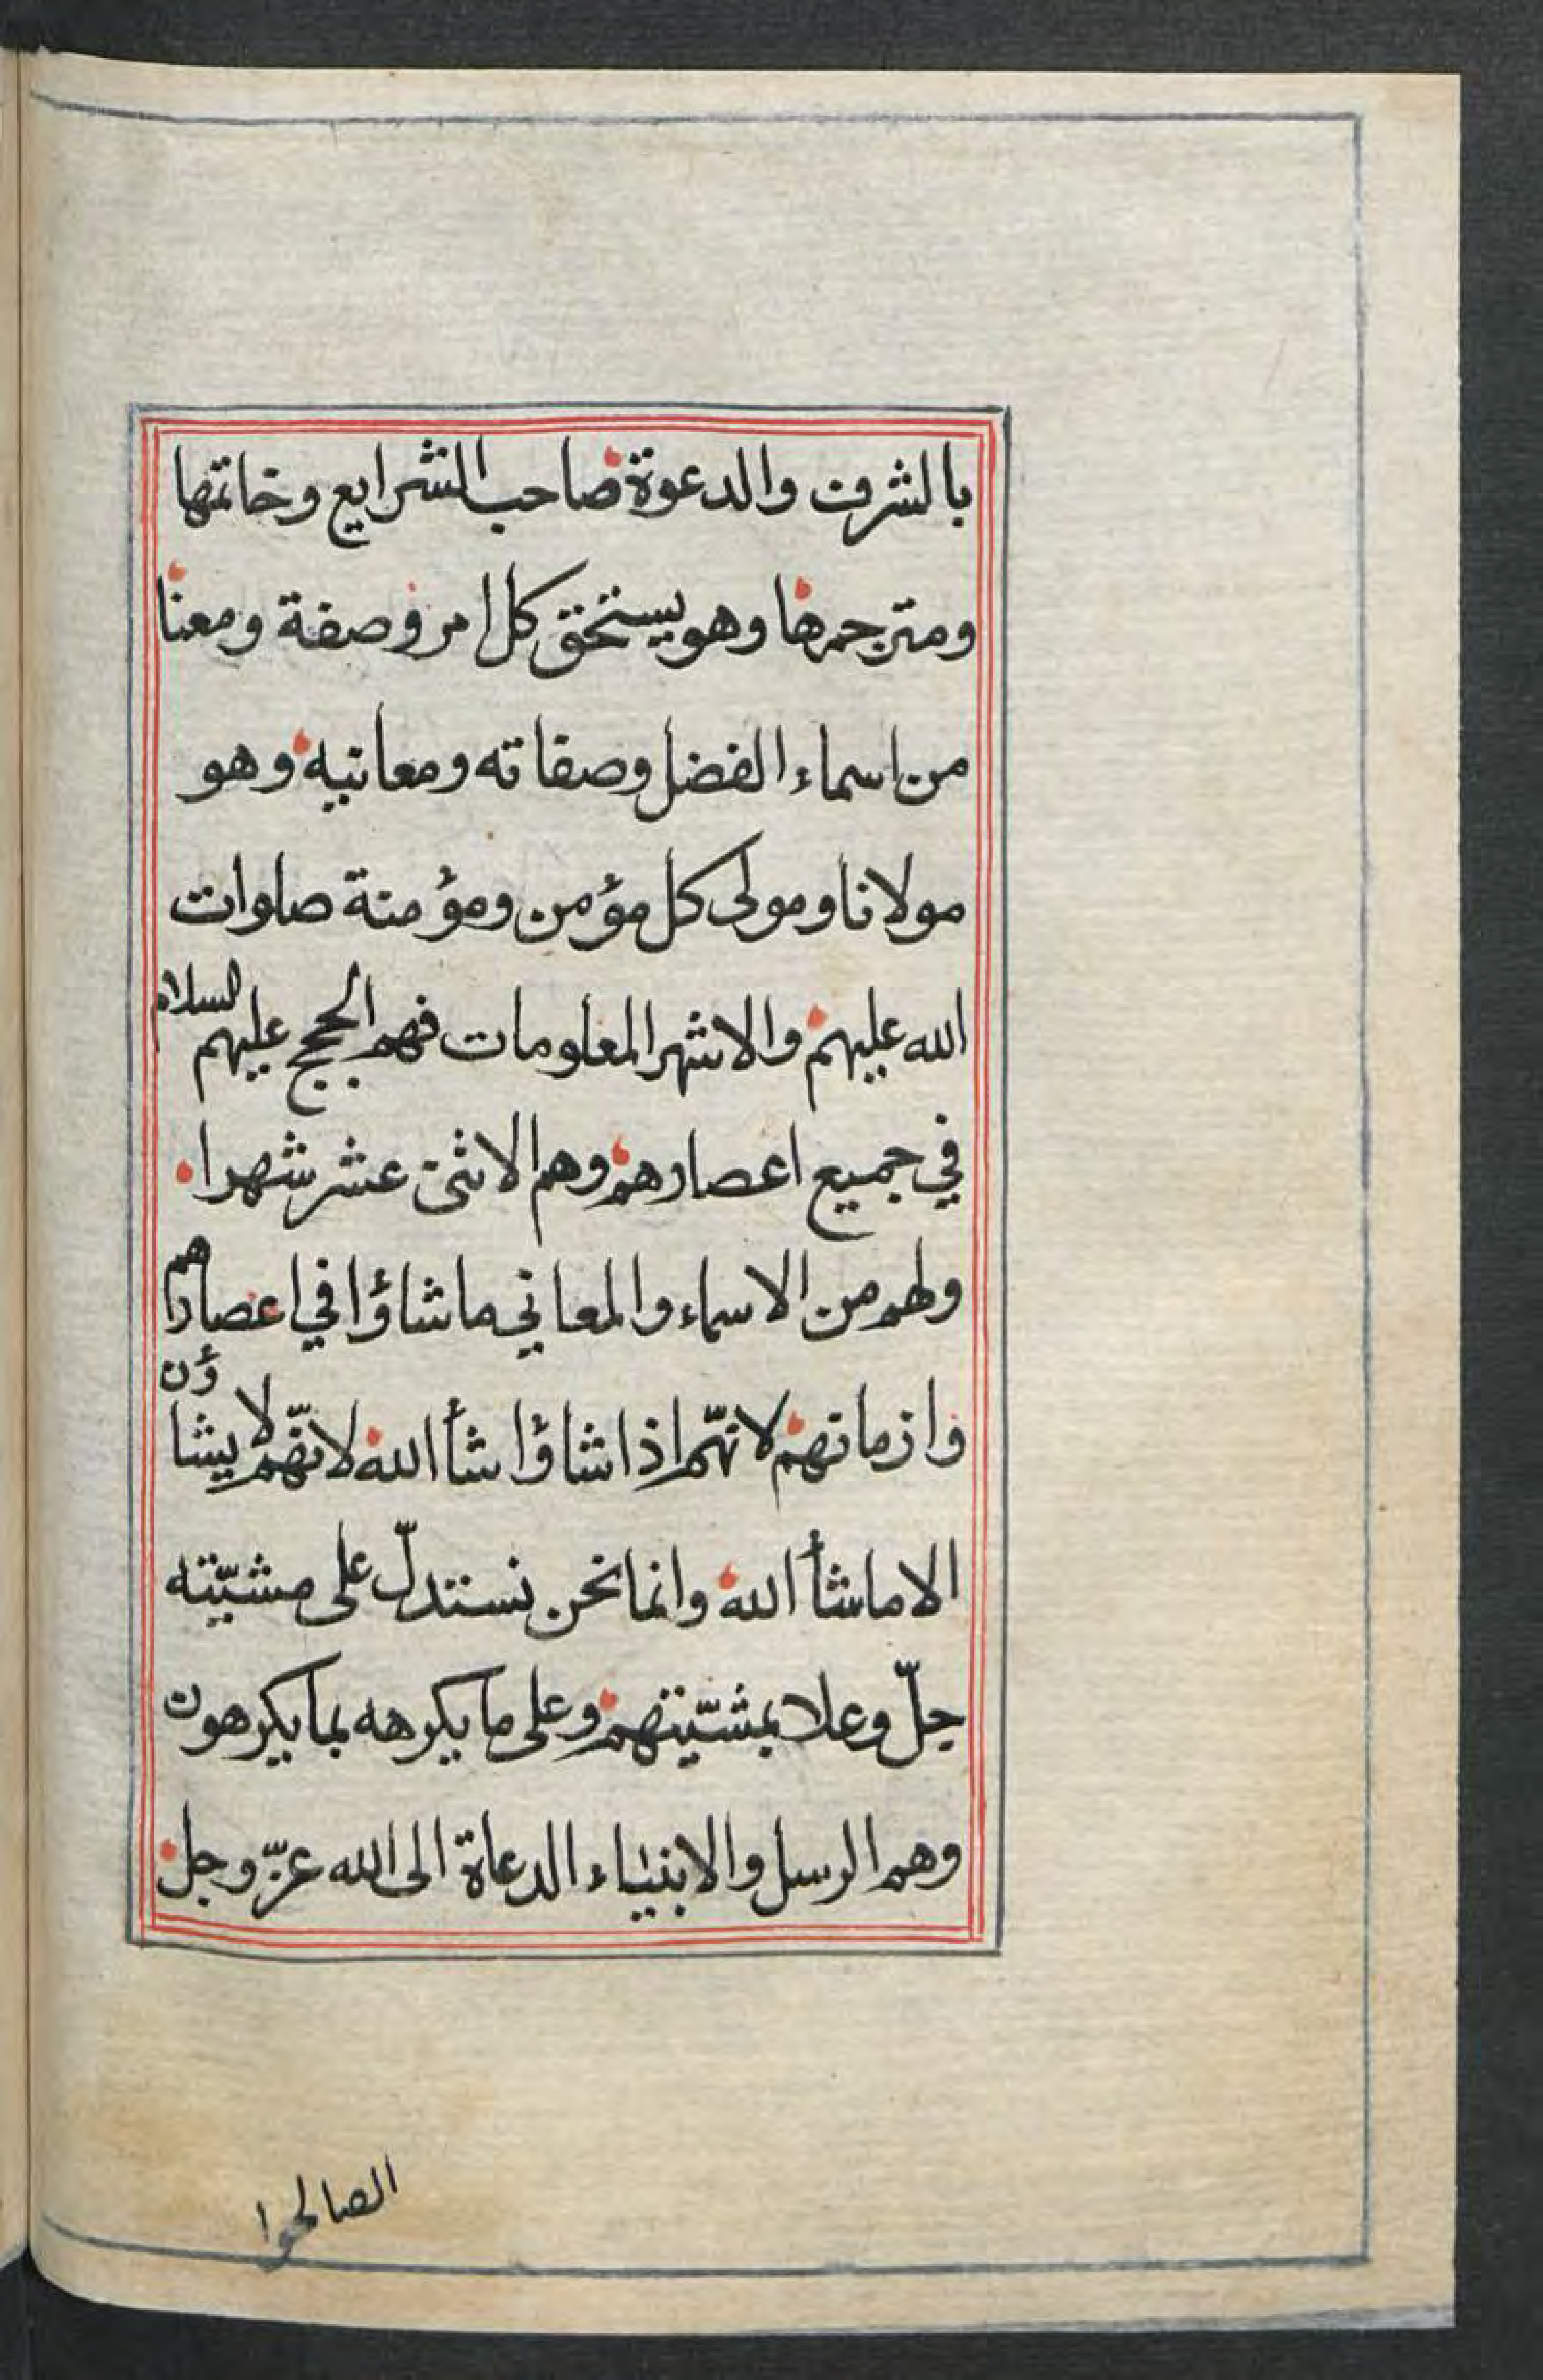 بالشرف والدعوة صاحب الشرايع وخاتمها
ومترجمها وهو يستحق كل امر وصفة ومعنا
من اسماء الفضل وصفاته ومعانيه وهو
مولانا ومولى كل مؤمن ومؤمنة صلوات
الله عليهم والاشهر المعلومات فهم الحجج عليهم السلام
في جميع اعصارهم وهم الاثنى عشر شهرا
ولهم من الاسماء والمعاني ما شاؤا في اعصارهم
وازمانهم لانهّم اذا شاؤا شأ الله لانهّم لا يشاؤن
الا ماشأ الله وانما نحن نستدلّ على مشيّته
جلّ وعلا بمشيّتهم وعلى ما يكرهه بما يكرهون
وهم الرسل والانبياء الدعاة الى الله عزّ وجل
الصالحوا